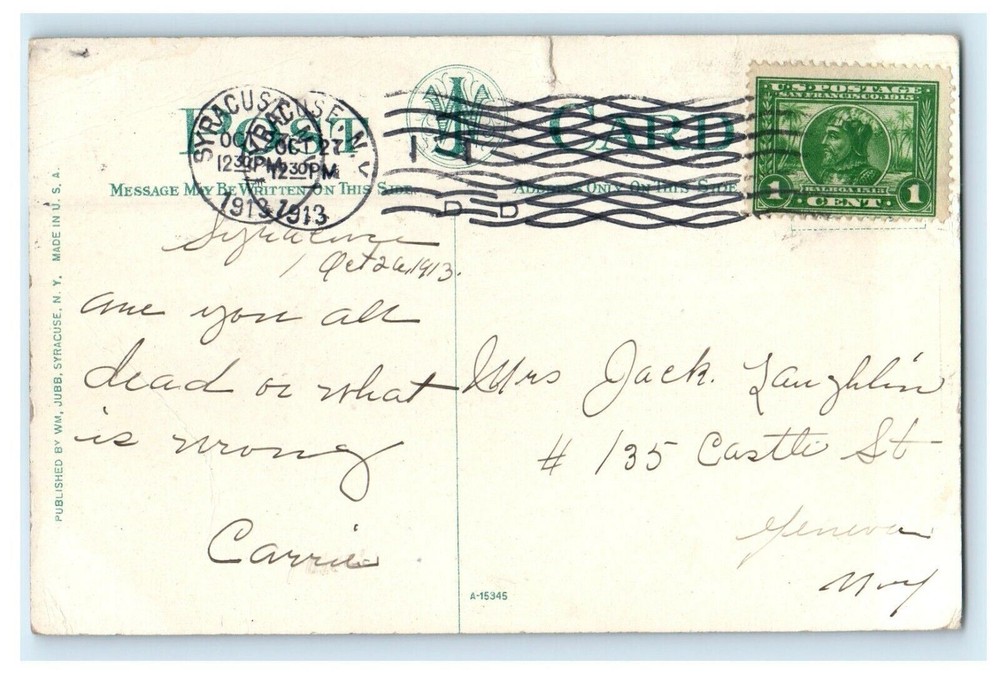 POST CARD
MESSAGE MAY BE WRITTEN ON THIS SIDE.
ADDRESS ONLY ON THIS SIDE
SYRACUSE, N.Y.
OCT 27
12 30 PM
1913
1913
D D
U.S. POSTAGE
SAN FRANCISCO, 1915
BALBOA 1513
1 CENT 1
Syracuse
Oct 26, 1913.
are you all
dead or what
is wrong
Carrie
Mrs Jack. Laughlin
# 135 Castle St
Geneva
N.Y.
PUBLISHED BY WM. JUBB, SYRACUSE, N. Y. MADE IN U. S. A.
A-15345